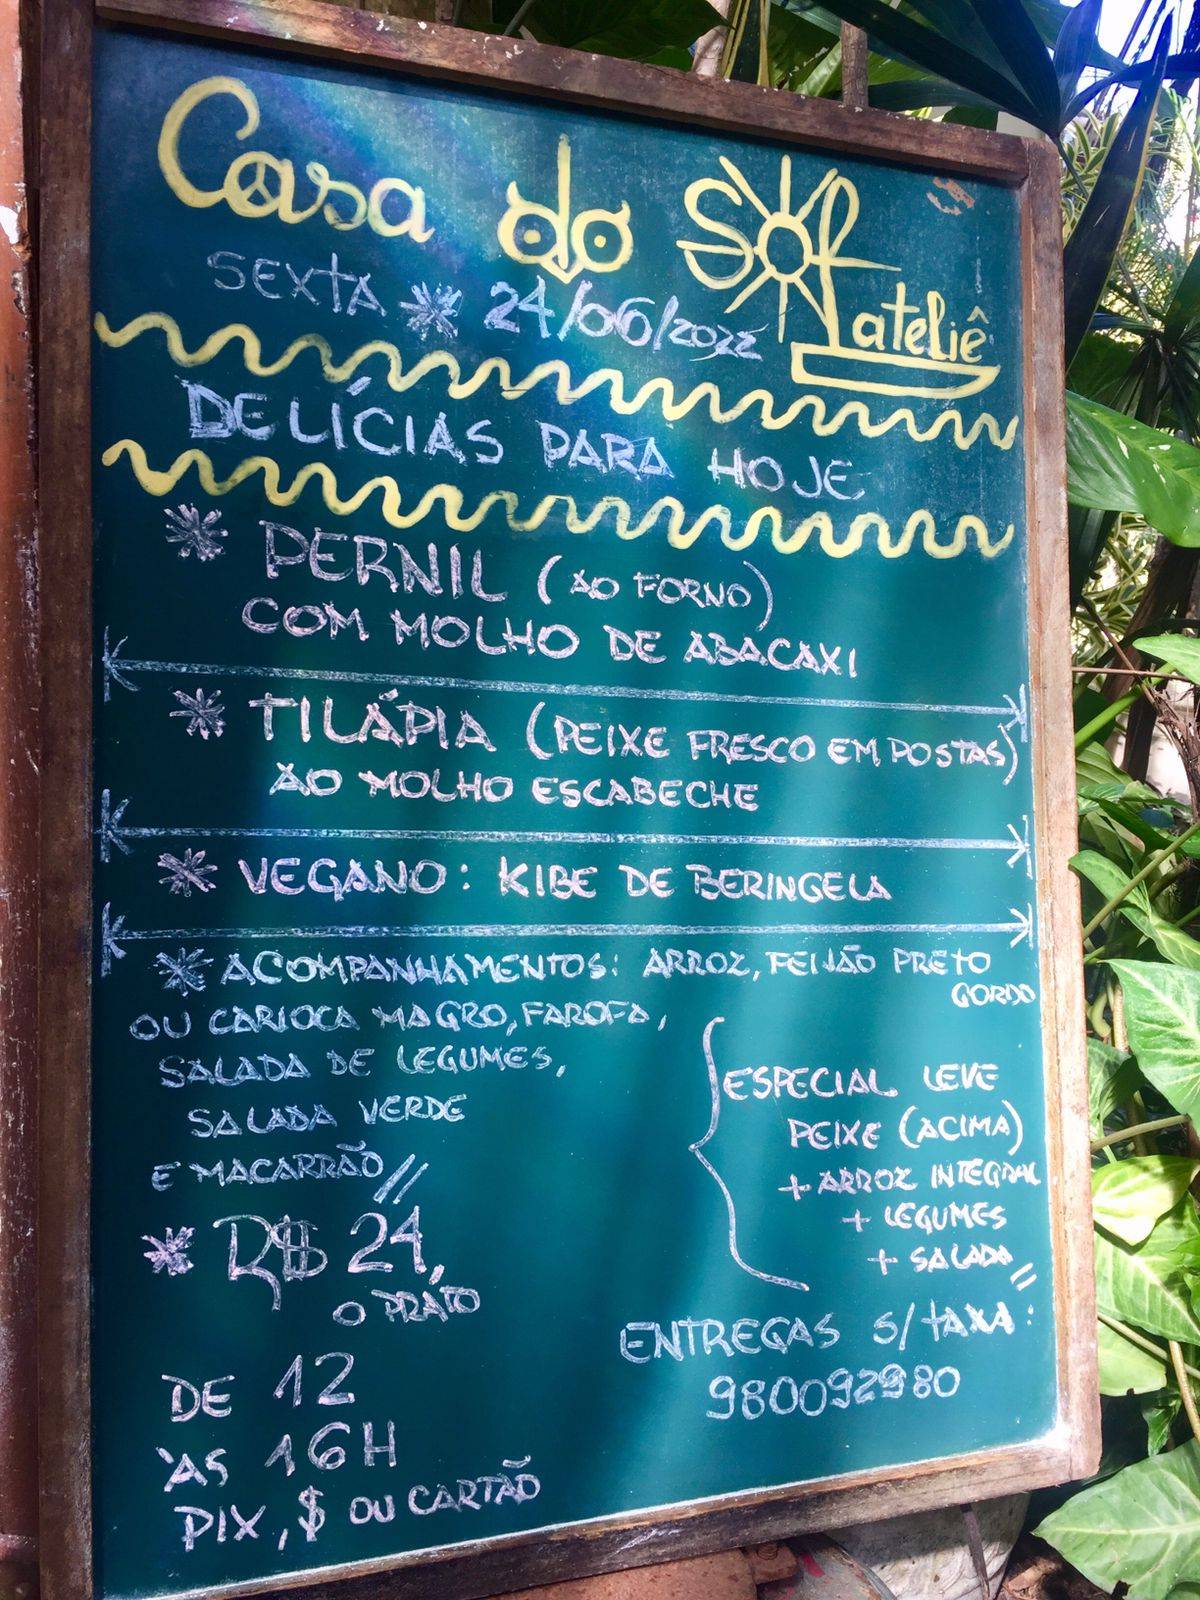 Casa do Sol
ateliê
SEXTA * 24/06/2022
DELÍCIAS PARA HOJE
* PERNIL (AO FORNO)
COM MOLHO DE ABACAXI
* TILÁPIA (PEIXE FRESCO EM POSTAS)
AO MOLHO ESCABECHE
* VEGANO: KIBE DE BERINGELA
* ACOMPANHAMENTOS: ARROZ, FEIJÃO PRETO
GORDO
OU CARIOCA MAGRO, FAROFA,
SALADA DE LEGUMES,
SALADA VERDE
E MACARRÃO //
* R$ 24,
O PRATO
DE 12
ÀS 16H
PIX, $ OU CARTÃO
ESPECIAL LEVE
PEIXE (ACIMA)
+ ARROZ INTEGRAL
+ LEGUMES
+ SALADA //
ENTREGAS S/ TAXA:
980092980